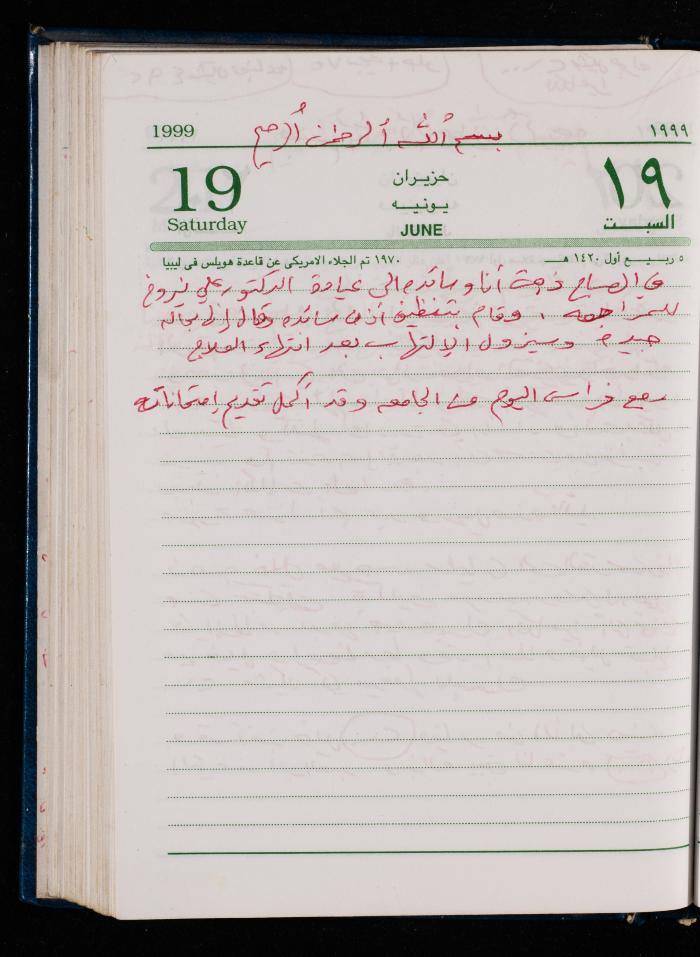 1999 بسم الله الرحمن الرحيم ١٩٩٩
19 حزيران ١٩
يونيه
Saturday JUNE السبت
٥ ربيع أول ١٤٢٠ هـ ١٩٧٠ تم الجلاء الامريكى عن قاعدة هويلس فى ليبيا
في الصباح ذهبت أنا و سائده الى عيادة الدكتور علي
للمراجعه ، وقام بتنظيف أذن سائده وقال إنها بحاله
جيدة وسيزول الإلتهاب بعد انتهاء العلاج
رجع فراس اليوم من الجامعه وقد أكمل تقديم إمتحاناته